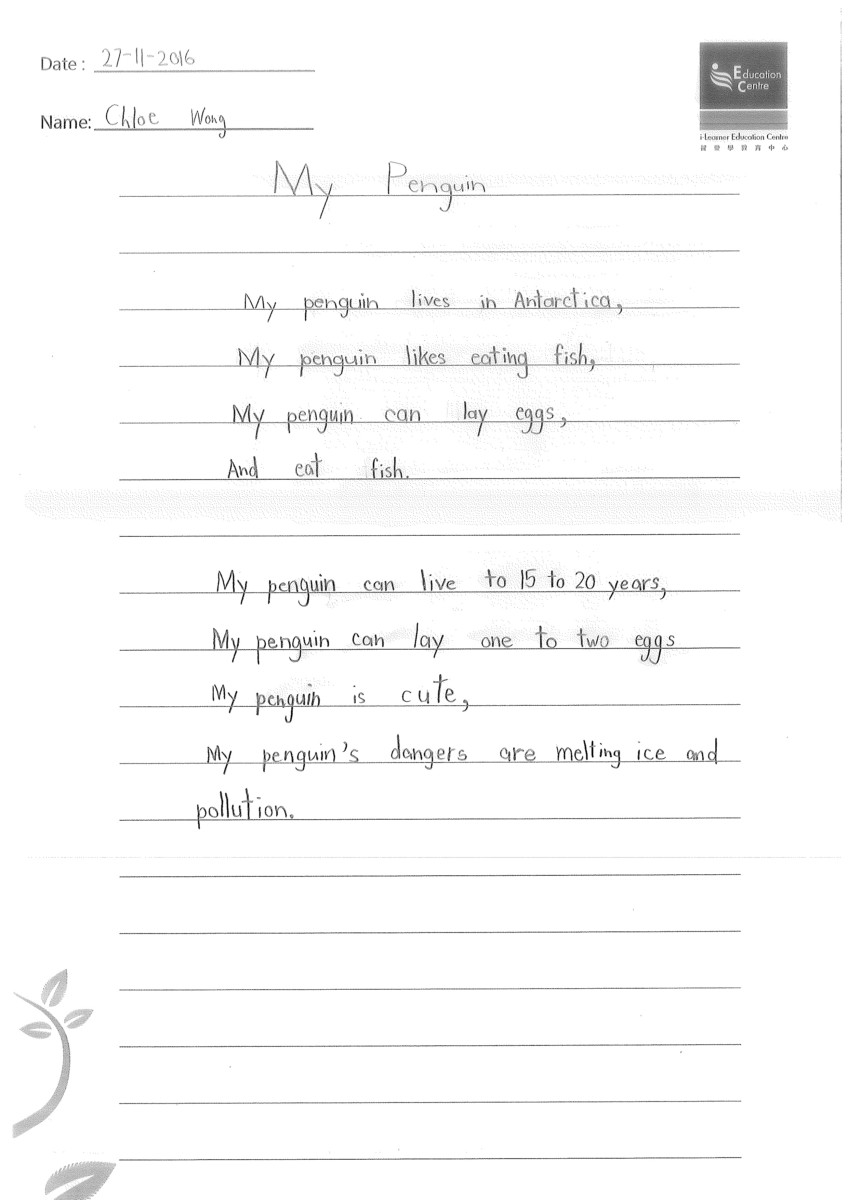 Date: 27-11-2016
Education
Centre
Name: Chloe Wong
i-Learner Education Centre
My Penguin
My penguin lives in Antarctica,
My penguin likes eating fish,
My penguin can lay eggs,
And eat fish.
My penguin can live to 15 to 20 years,
My penguin can lay one to two eggs
My penguin is cute,
My penguin's dangers are melting ice and
pollution.